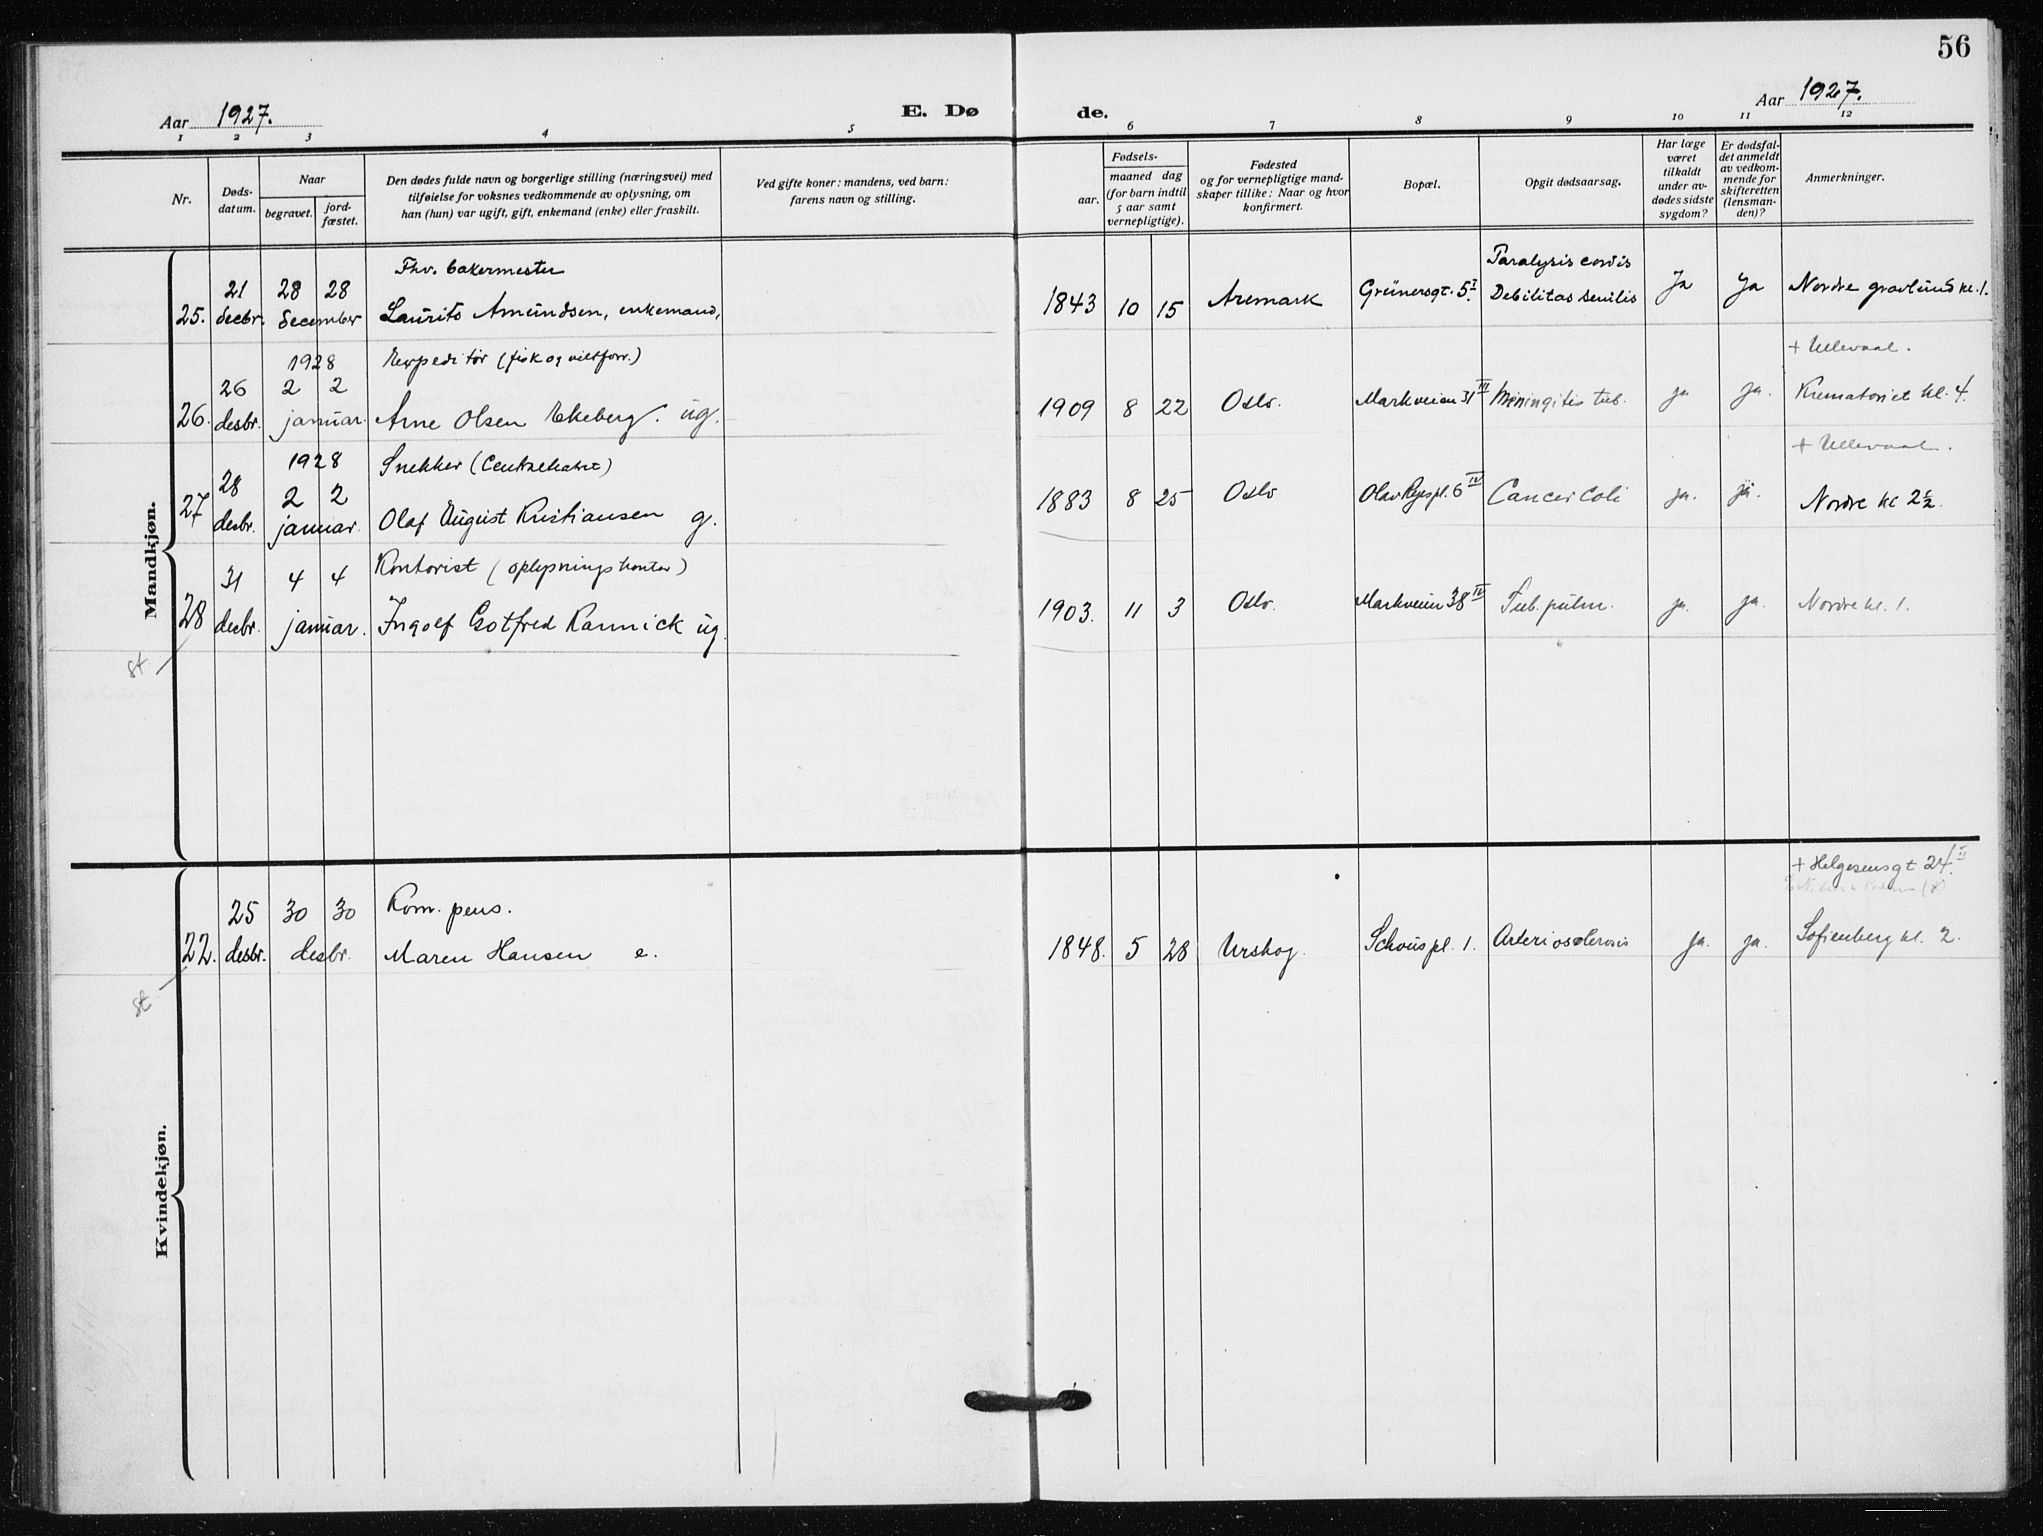 56
Aar 1927.
E. Dø
de.
Aar 1927.
1 2 3 4 5 6 7 8 9 10 11 12
Nr.
Døds-
datum.
Naar
begravet.
jord-
fæstet.
Den dødes fulde navn og borgerlige stilling (næringsvei) med
tilføielse for voksnes vedkommende av oplysning, om
han (hun) var ugift, gift, enkemand (enke) eller fraskilt.
Ved gifte koner: mandens, ved barn:
farens navn og stilling.
Fødsels-
aar.
maaned dag
(for barn indtil
5 aar samt
vernepligtige).
Fødested
og for vernepligtige mand-
skaper tillike: Naar og hvor
konfirmert.
Bopæl.
Opgit dødsaarsag.
Har læge
været
tilkaldt
under av-
dødes sidste
sygdom?
Er dødsfal-
det anmeldt
av vedkom-
mende for
skifteretten
(lensman-
den)?
Anmerkninger.
Mandkjøn.
Fhv. bakermester
Paralysis cordis
21 28 28
25. decbr. december Laurits Amundsen, enkemand, 1843 10 15 Aremark Grünersgt. 5 I Debilitas senilis Ja Ja Nordre gravlund kl. 1.
1928 Expeditør (fisk og viltforr.)
+ Ullevaal.
26 2 2
26. desbr. januar. Arne Olsen Ekeberg. ug. 1909 8 22 Oslo. Markveien 31 III Meningitis tub. ja ja. Krematoriet kl. 4.
1928 Snekker
+ Ullevaal.
28 2 2
27 desbr. januar. Olaf August Kristiansen g. 1883 8 25 Oslo Olav Ryespl. 6 IV Cancer Coli ja. ja. Nordre kl 2 ½.
31 4 4 Kontorist (oplysningskontor)
28 desbr. januar. Ingolf Gotfred Rannick ug. 1903. 11 3 Oslo. Markveien 38 IV Tub. pulm. ja. ja. Nordre kl. 1.
st.
Kvindekjøn.
+ Helgesensgt 24. II
25 30 30 Kom. pens.
22. desbr. desbr. Maren Hansen e. 1848. 5 28 Urskog. Schouspl. 1. Arteriosclerosis ja. ja. Sofienberg kl. 2.
st.